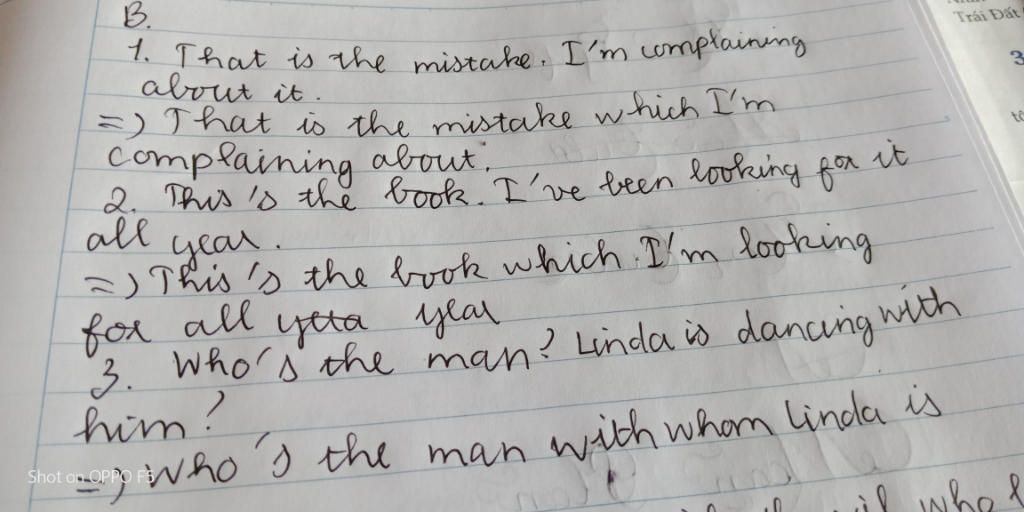 Trái Đất
3
B.
1. That is the mistake. I'm complaining
about it.
=) That is the mistake which I'm
complaining about.
2. This's the book. I've been looking for it
all year.
=) This's the book which I'm looking
for all year
3. Who's the man? Linda is dancing with
him?
=) Who's the man with whom Linda is
who
Shot on OPPO F5